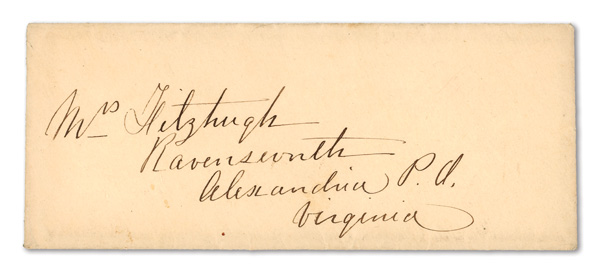 Mrs Fitzhugh
Ravensworth
Alexandria P.O.
Virginia